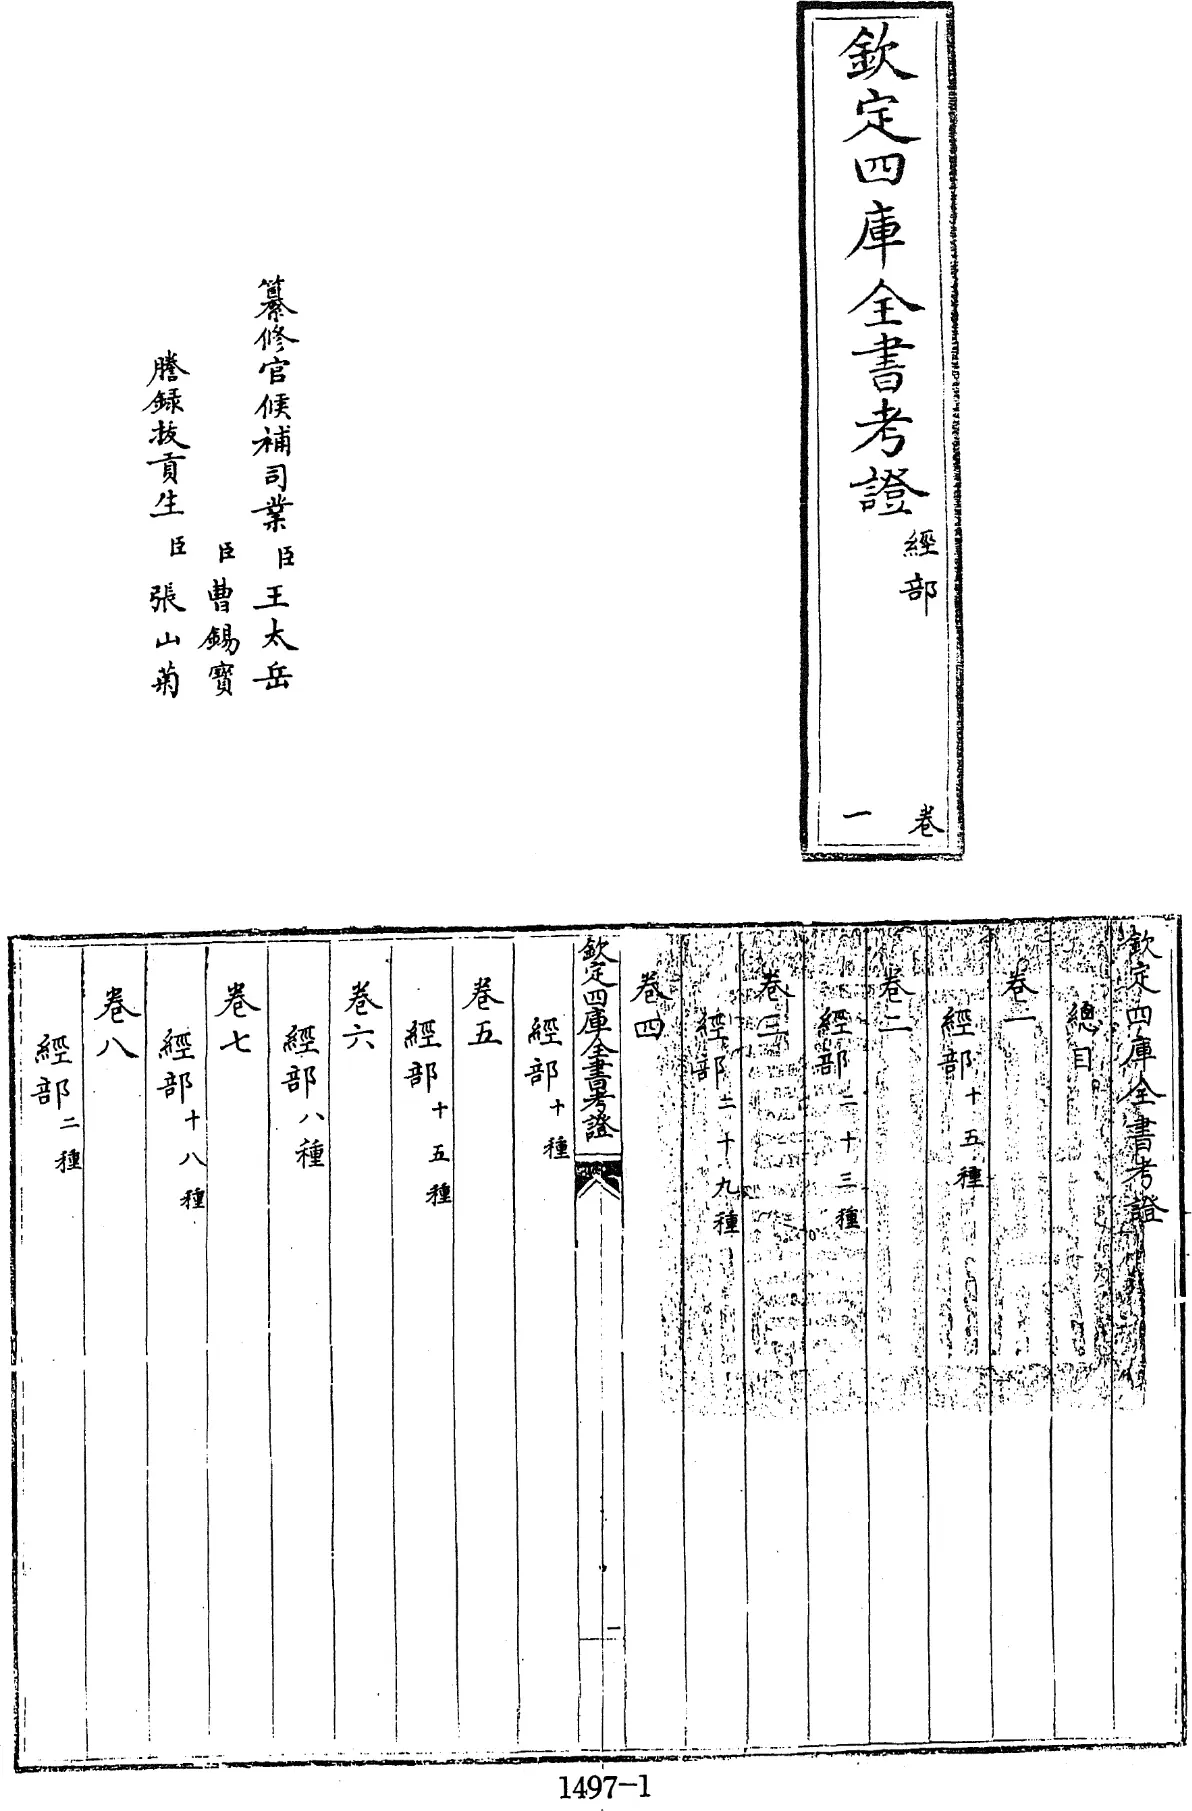 欽定四庫全書考證
經部
卷
一
纂修官候補司業臣王太岳
臣曹錫寶
謄録拔貢生臣張山菊
欽定四庫全書考證
總目
卷一
經部十五種
卷二
經部二十三種
卷三
經部二十九種
卷四
欽定四庫全書考證
一
經部十種
卷五
經部十五種
卷六
經部八種
卷七
經部十八種
卷八
經部二種
1497-1